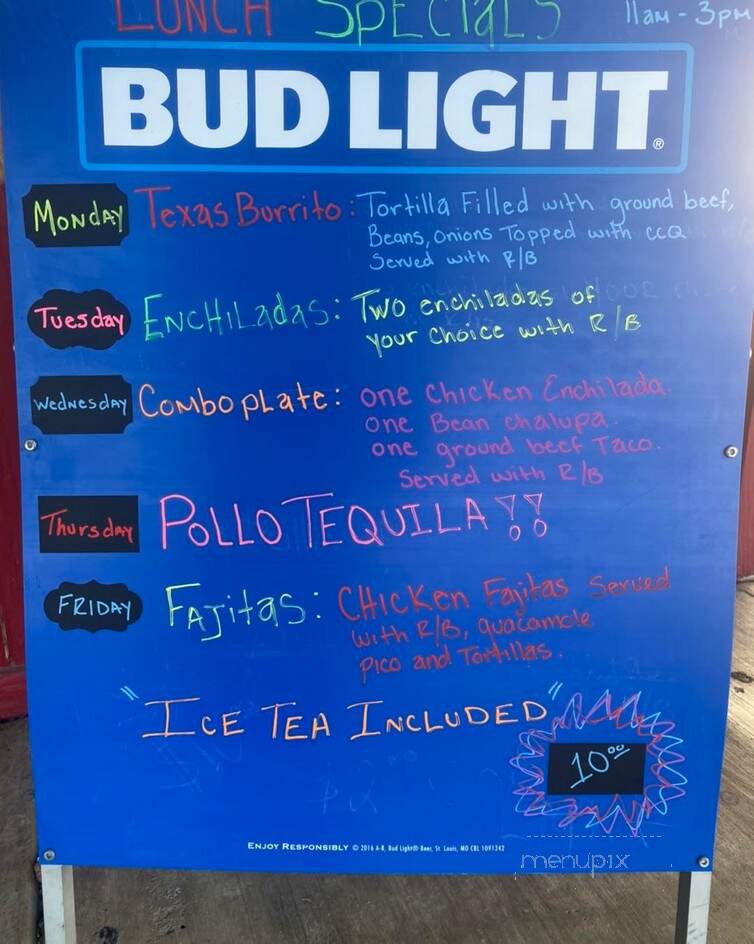 LUNCH SPECIALS 11am - 3pm
BUD LIGHT®
Monday Texas Burrito: Tortilla Filled with ground beef,
Beans, onions Topped with CCQ
Served with R/B
Tuesday Enchiladas: Two enchiladas of
your choice with R/B
Wednesday Combo plate: one chicken Enchilada.
one Bean chalupa.
one ground beef Taco.
Served with R/B
Thursday POLLO TEQUILA!!
FRIDAY Fajitas: CHicken Fajitas Served
with R/B, guacamole
Pico and Tortillas.
"ICE TEA INCLUDED"
10.00
ENJOY RESPONSIBLY © 2016 A-B, Bud Light® Beer, St. Louis, MO CBL 1091342
menupix